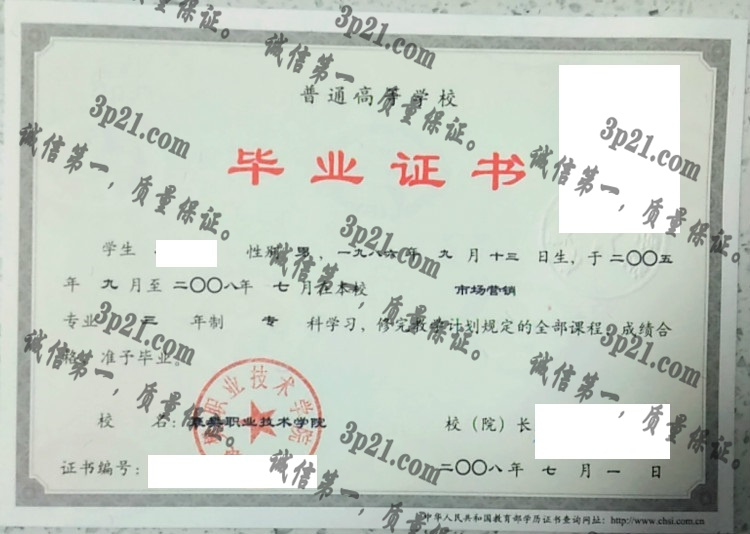 普通高等学校
毕业证书
学生 性别 男，一九八六年 九 月 十三 日生，于 二〇〇五
年 九 月至 二〇〇八年 七 月在本校 市场营销
专业 三 年制 专 科学习，修完教学计划规定的全部课程，成绩合
格，准予毕业。
校 名：职业技术学院
校（院）长
证书编号：
二〇〇八年 七 月 一 日
中华人民共和国教育部学历证书查询网址：http://www.chsi.com.cn
职业技术学院
质量保证。
3p21.com
诚信第一，质量保证。
3p21.com
诚信第一，质量保证。
3p21.com
诚信第一，质量保证。
3p21.com
诚信第一，质量保证。
3p21.com
诚信第一，质量保证。
3p21.com
诚信第一，质量保证。
3p21.com
诚信第一，质量保证。